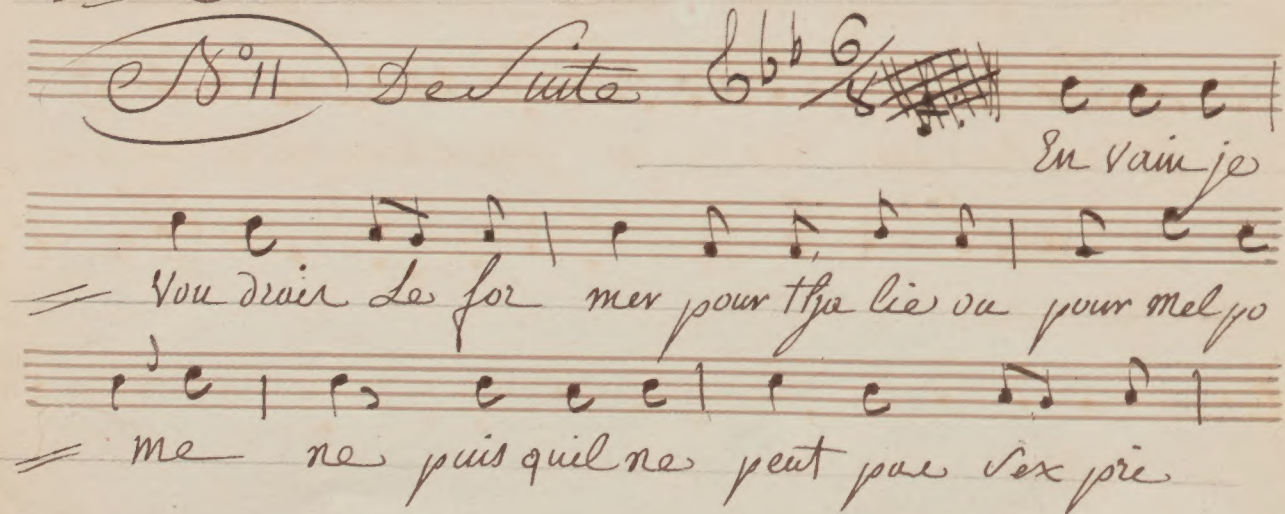 No 11 De Suite 6/8
En vain je
voudrais le for mer pour tha lie ou pour mel po
me ne puis quil ne peut pas s'ex pri